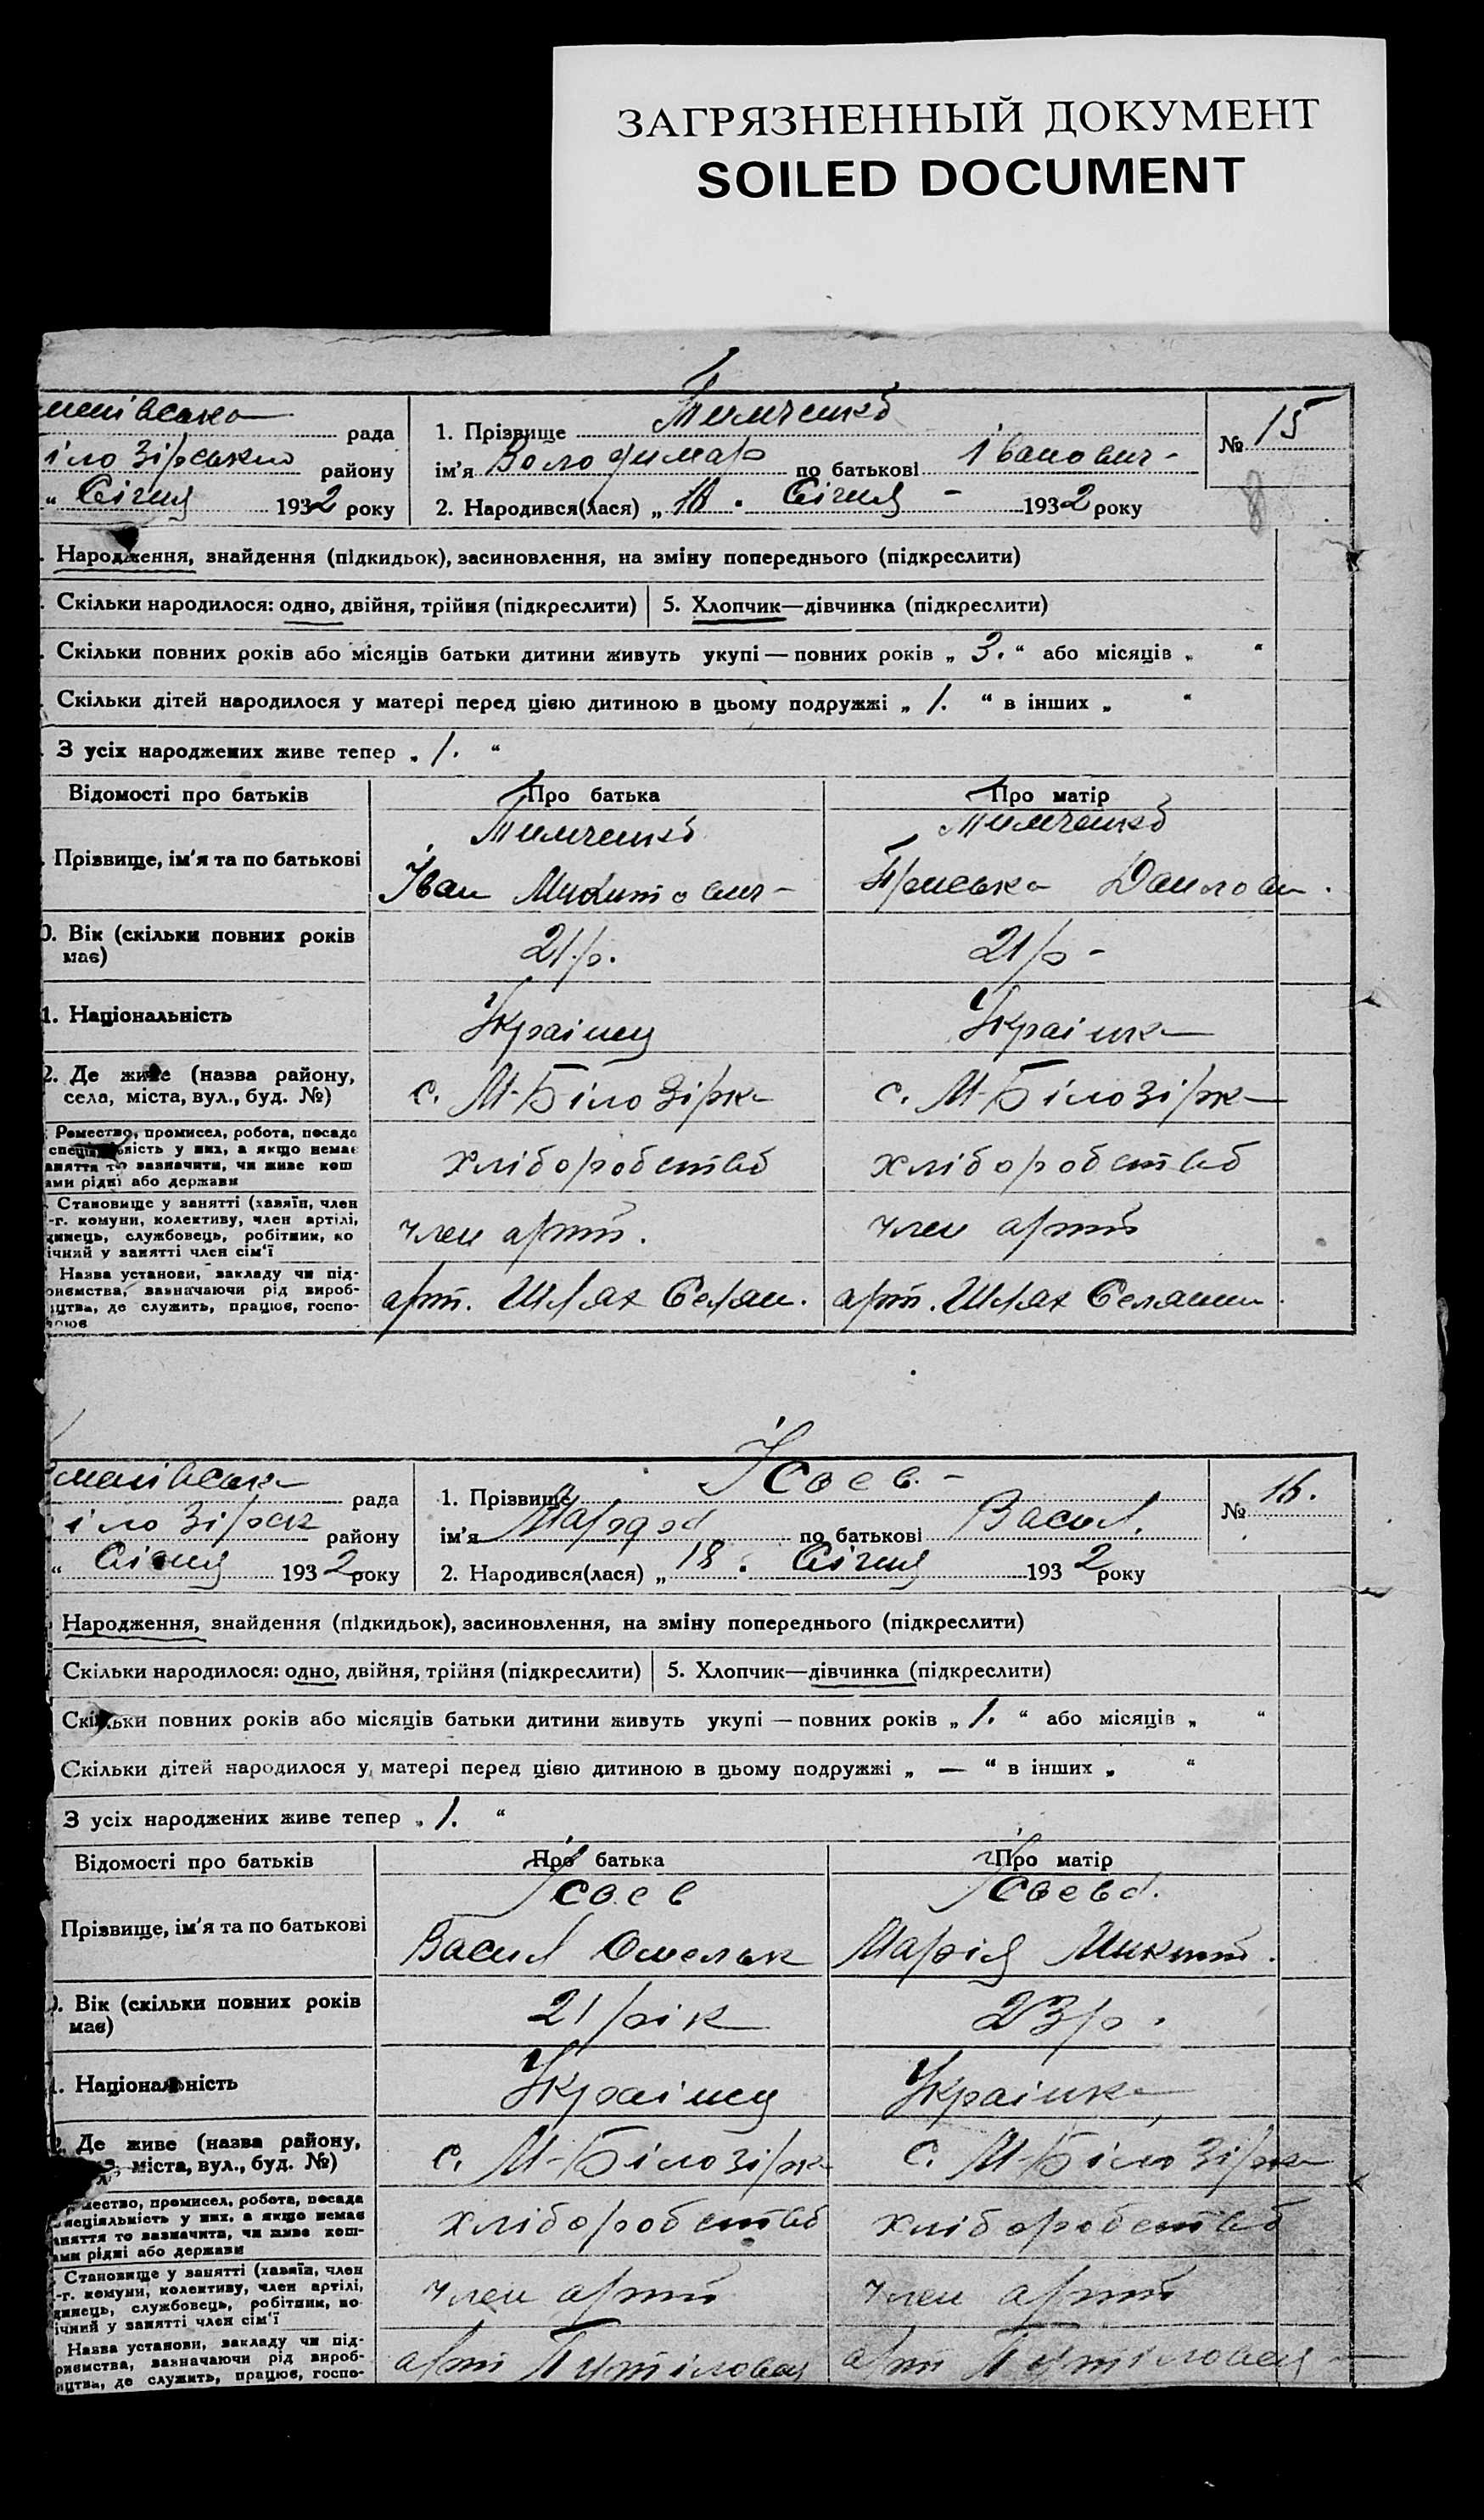 ЗАГРЯЗНЕННЫЙ ДОКУМЕНТ
SOILED DOCUMENT
Тимченко
рада
1. Прізвище
№ 15
іло Зірського району
ім'я Володимар по батькові Іванович -
„ Січня 1932 року
2. Народився(лася) „ . Січня - 1932 року
Народження, знайдення (підкидьок), засиновлення, на зміну попереднього (підкреслити)
Скільки народилося: одно, двійня, трійня (підкреслити) 5. Хлопчик—дівчинка (підкреслити)
Скільки повних років або місяців батьки дитини живуть укупі — повних років „ 3. “ або місяців „ “
Скільки дітей народилося у матері перед цією дитиною в цьому подружжі „ 1. “ в інших „ “
З усіх народжених живе тепер „ 1. “
Відомості про батьків Про батька Про матір
Тимченко Тимченко
Прізвище, ім'я та по батькові
Іван Микитович - Пріська Данилов .
0. Вік (скільки повних років має) 21 р. 21 р -
1. Національність Українец Українка
2. Де живе (назва району,
села, міста, вул., буд. №) с. М-Білозірка с. М-Білозірка
Ремество, промисел, робота, посада
спеціальність у них, а якщо немає
аняття то зазначити, чи живе кош
ами рідні або держави
хліборобство хліборобство
Становище у занятті (хазяїн, член
-г. комуни, колективу, член артілі,
динець, службовець, робітник, по
ічний у занятті член сім'ї
член арт. член арт
Назва установи, закладу чи під-
риємства, зазначаючи рід вироб-
ицтва, де служить, працює, госпо-
рює
арт. Шлях Селян. арт. Шлях Селянин.
Ісаев -
рада
1. Прізвище
№ 16.
іло Зірск району
ім'я по батькові Васил.
“ Січня 1932 року
2. Народився(лася) „ 18 . Січня 1932 року
Народження, знайдення (підкидьок), засиновлення, на зміну попереднього (підкреслити)
Скільки народилося: одно, двійня, трійня (підкреслити) 5. Хлопчик—дівчинка (підкреслити)
Скільки повних років або місяців батьки дитини живуть укупі — повних років „ 1. “ або місяців „ “
Скільки дітей народилося у матері перед цією дитиною в цьому подружжі „ — “ в інших „ “
З усіх народжених живе тепер „ 1. “
Відомості про батьків Про батька Про матір
Прізвище, ім'я та по батькові
Васил Омельк Марія Микит.
0. Вік (скільки повних років має) 21 рік 23 р.
1. Національність Українец Українка
2. Де живе (назва району,
міста, вул., буд. №) с. М-Білозірк с. М-Білозірка
мество, промисел, робота, посада
пеціяльність у них, а якщо немає
аняття то зазначити, чи живе кош-
ами рідні або держави
хліборобство хліборобство
Становище у занятті (хазяїн, член
-г. комуни, колективу, член артілі,
динець, службовець, робітник, по-
ічний у занятті член сім'ї
член арт член арт
Назва установи, закладу чи під-
риємства, зазначаючи рід вироб-
ицтва, де служить, працює, госпо-
арт Путіловец арт Путіловец